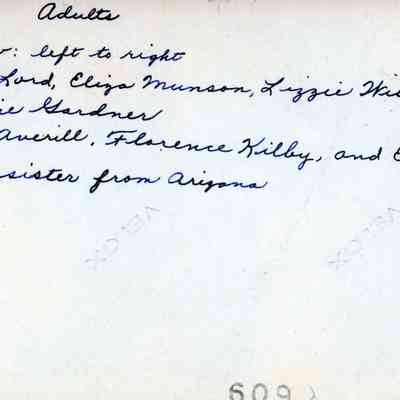 Adults
: left to right
Lord, Eliza Munson, Lizzie Wi
ie Gardner
Averill, Florence Kilby, and E
sister from Arizona
VELOX
VELOX
609